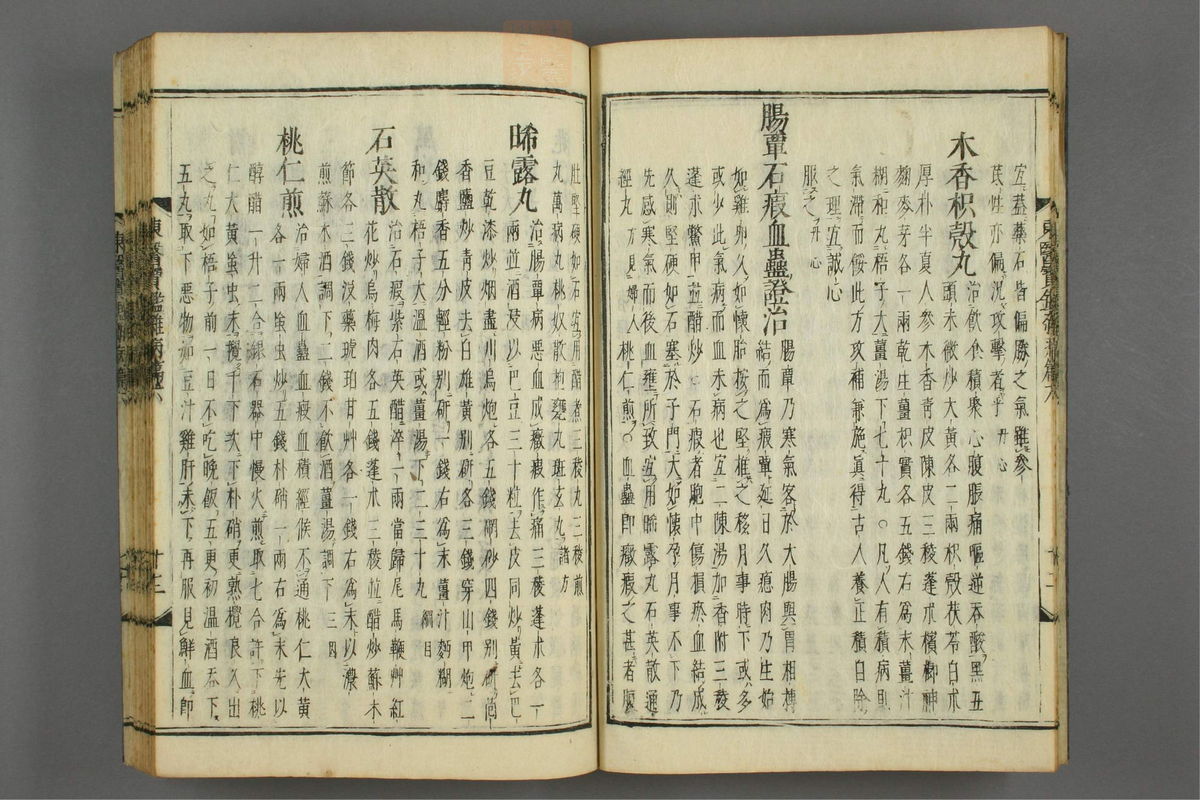 宜蓋藥石皆偏勝之氣雖參
芪性亦偏況攻擊者乎 丹心
木香枳殼丸 治飮食積聚心腹脹痛嘔逆吞酸黑丑
頭末微炒大黃各二兩枳殼茯苓白朮
厚朴半夏人參木香靑皮陳皮三稜蓬朮檳榔神
麴麥芽各一兩乾生薑枳實各五錢右爲末薑汁
糊和丸梧子大薑湯下七十丸○凡人有積病則
氣滯而餒此方攻補兼施眞得古人養正積自除
之理宜誠心
服之 丹心
腸覃石瘕血蠱證治 腸覃乃寒氣客於大腸與胃相搏
結而爲瘕覃延日久瘜肉乃生始
如雞卵久如懷胎按之堅推之移月事時下或多
或少此氣病而血未病也宜二陳湯加香附三稜
蓬朮鱉甲並醋炒○石瘕者胞中傷損瘀血結成
久則堅硬如石塞於子門大如懷孕月事不下乃
先感寒氣而後血壅所致宜用晞露丸石英散通
經丸 方見婦人 桃仁煎○血蠱卽癥瘕之甚者腹
肚堅硬如石宜用醋煮三稜丸三稜煎
丸萬病丸桃奴散 諸方
晞露丸 治腸覃病惡血成癥瘕作痛三稜蓬朮各一
兩並酒浸以巴豆三十粒去皮同炒黃去巴
豆乾漆炒烟盡川烏炮各五錢硇砂四錢別硏茴
香鹽炒靑皮去白雄黃別硏各三錢穿山甲炮二
錢麝香五分輕粉別硏一錢右爲末薑汁麪糊
和丸梧子大溫酒或薑湯下二三十丸 綱目
石英散 治石瘕紫石英醋淬一兩當歸尾馬鞭艸紅
花炒烏梅肉各五錢蓬朮三稜並醋炒蘇木
節各三錢沒藥琥珀甘艸各一錢右爲末以濃
煎蘇木酒調下二錢不飮酒薑湯調下
桃仁煎 治婦人血蠱血瘕血積經候不通桃仁大黃
各一兩䖟虫炒五錢朴硝一兩右爲末先以
醇醋一升二合銀石器中慢火煎取七合許下桃
仁大黃䖟虫末攪千下次下朴硝更熟攪良久出
之丸如梧子前一日不吃晚飯五更初溫酒吞下
五丸取下惡物如豆汁雞肝未下再服見鮮血卽
東醫寶鑑雜病篇六